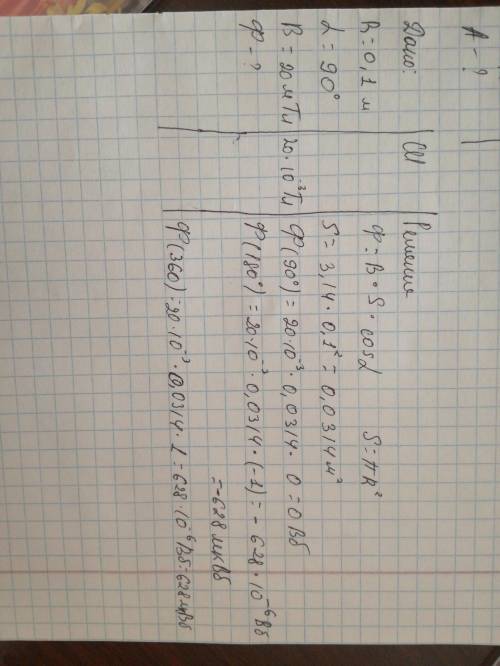 A - ?
Дано:
R = 0,1 м
α = 90°
B = 20 мТл
Ф - ?
СИ
20·10⁻³Тл
Решение
Ф = B·S·cosα S = πR²
S = 3,14·0,1² = 0,0314 м²
Ф(90°) = 20·10⁻³·0,0314·0 = 0 Вб
Ф(180°) = 20·10⁻³·0,0314·(-1) = - 628·10⁻⁶Вб
= -628 мкВб
Ф(360) = 20·10⁻³·0,0314·1 = 628·10⁻⁶Вб = 628 мкВб